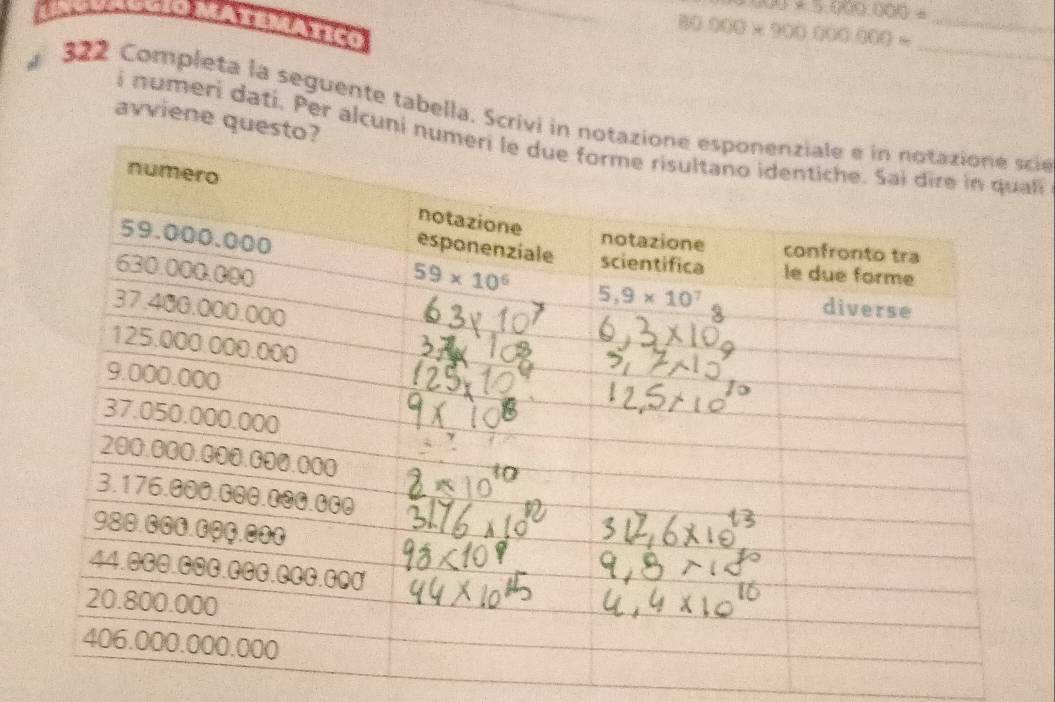 LINGUAGGIO MATEMATICO
× 5.000.000 =
80.000 × 900.000.000 =
322 Completa la seguente tabella. Scrivi in notazione esponenziale e in notazione scie
i numeri dati. Per alcuni numeri le due forme risultano identiche. Sai dire in quali
avviene questo?
numero notazione esponenziale notazione scientifica confronto tra le due forme
59.000.000 59 × 10⁶ 5,9 × 10⁷ diverse
630.000.000 63 × 10⁷ 6,3 × 10⁸
37.400.000.000
125.000.000.000 125 × 10⁹ 12,5 × 10¹⁰
9.000.000 9 × 10⁸
37.050.000.000
200.000.000.000.000 2 × 10¹⁰
3.176.000.000.000.000 3176 × 10¹² 317,6 × 10¹³
980.000.000.000 98 × 10⁹ 9,8 × 10¹⁰
44.000.000.000.000.000 44 × 10¹⁵ 4,4 × 10¹⁶
20.800.000
406.000.000.000